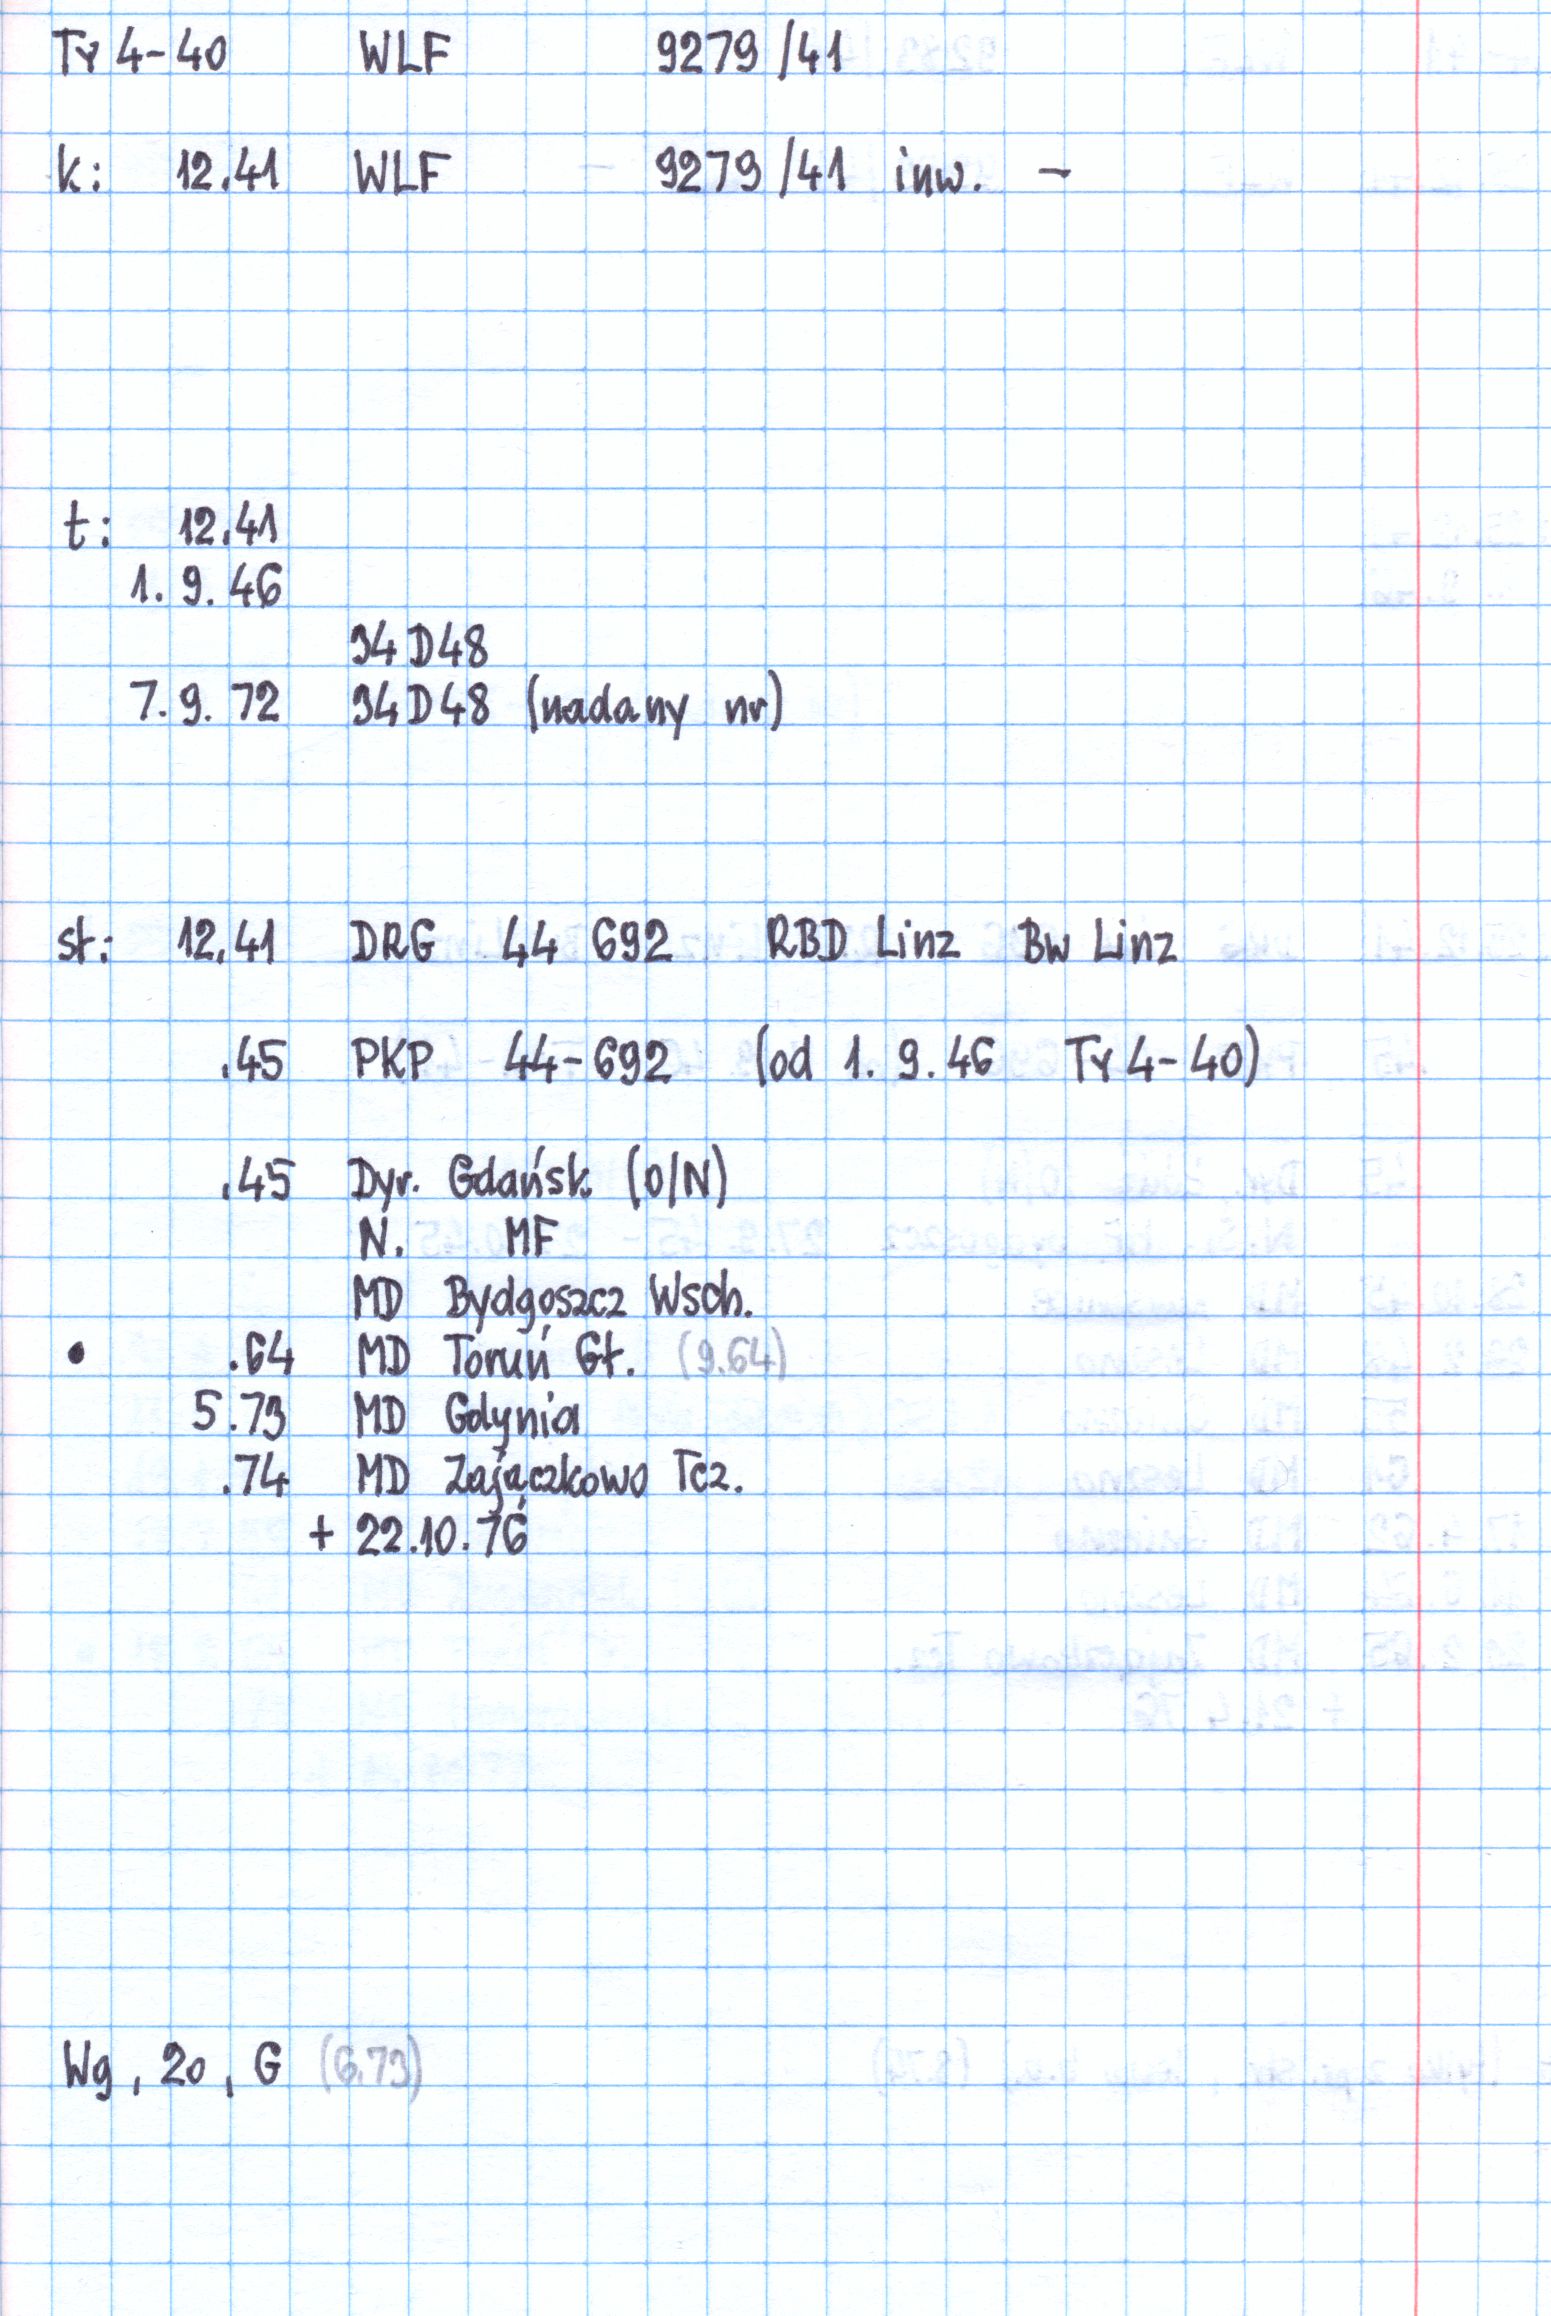 Ty 4-40 WLF 9279/41
k: 12.41 WLF - 9279/41 inw. -
t: 12.41
1.9.46
34D48
7.9.72 34D48 (nadany nr)
st: 12.41 DRG 44 692 RBD Linz Bw Linz
.45 PKP 44-692 (od 1.9.46 Ty 4-40)
.45 Dyr. Gdańsk (O/N)
N. MF
MD Bydgoszcz Wsch.
• .64 MD Toruń Gł. (9.64)
5.73 MD Gdynia
.74 MD Zajączkowo Tcz.
+ 22.10.76
Wg, 20, G (6.73)